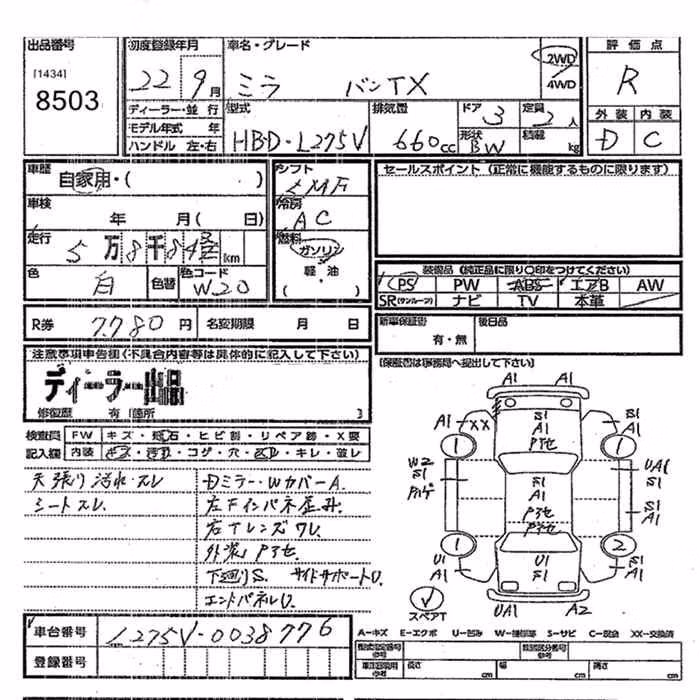 出品番号 初度登録年月 車名・グレード 評価点
[1434]
8503
22 9月 ミラ バンTX 2WD R
4WD
ディーラー・並行 型式 排気量 ドア 3 定員 2人 外装 内装
モデル年式 年
ハンドル 左・右 HBD・L275V 660cc 形状 BW 積載 kg D C
車歴 自家用・( ) シフト セールスポイント (正常に機能するものに限ります)
車検 年 月( 日) 冷房 AC
走行 5万8千8 km 燃料 ガソリン
軽・油
・( )
色 白 色替 色コード W20
装備品 (純正品に限り○印をつけてください)
PS PW ABS エアB AW
SR(サンルーフ) ナビ TV 本革
R券 7780円 名変期限 月 日 新車保証書 後日品
有・無
注意事項申告欄(不具合内容等は具体的に記入して下さい) (保証書は事務局へ提出して下さい)
ディーラー出品
修復歴 有(箇所 )
検査員 FW キズ・飛石・ヒビ割・リペア跡・X要
記入欄 内装 キズ・汚れ・コゲ・穴・スレ・キレ・破レ
天張り汚れ・スレ Dミラー・WカバーA.
シートスレ. 左Fインパネ歪み.
右Tレンズワレ.
外装P3セ
下廻りS. サイドサポートU.
エンドパネルU
A1 A1
A1 XX S1 A1 P3セ S1 A1
1 1
W2 S1 S1 A1 P3セ UA1 S1
S1 A1
P3セ
1 2
U1 A1 U1 S1 S1 A1
スペアT UA1 A2
車台番号 L275V-0038776
登録番号
A-キズ E-エクボ U-凹み W-補修跡 S-サビ C-腐食 XX-交換済
型式指定番号 参考 類別区分番号 参考
車正規時用 参考 長さ cm 幅 cm 高さ cm